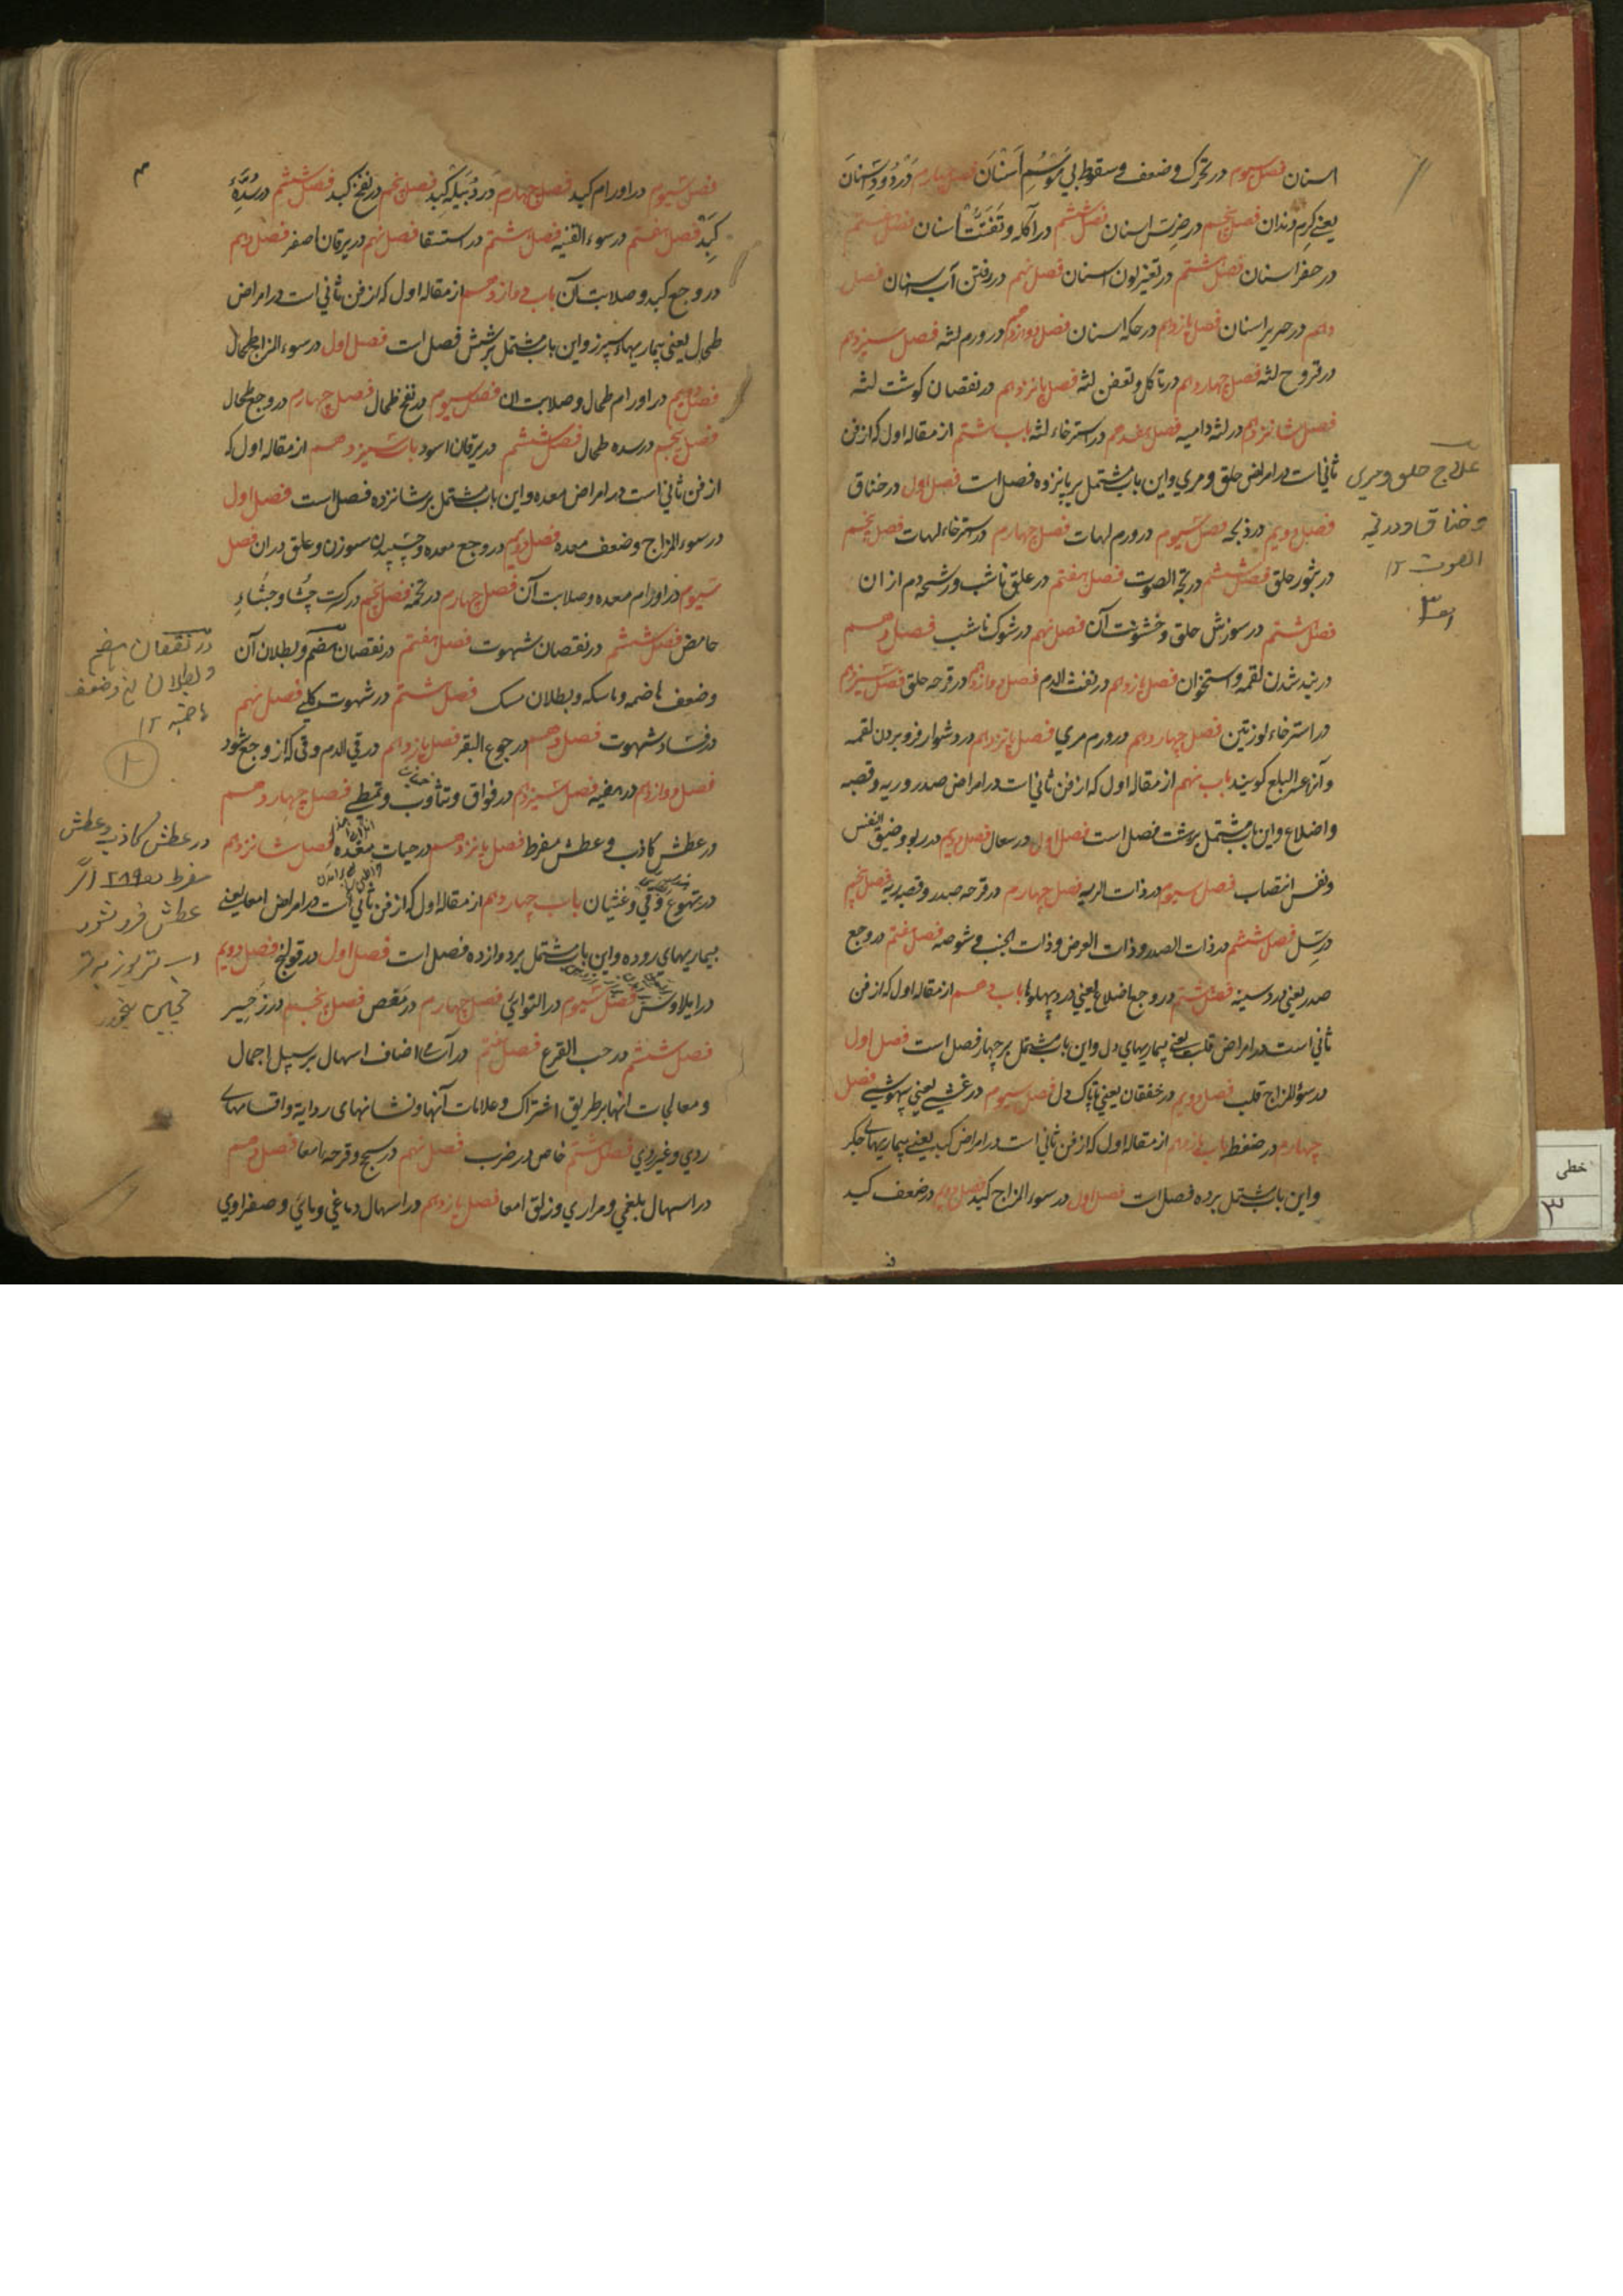 اسنان فصل سیوم در تحرک و ضعف و سقوط بی اسنان فصل چهارم در دود اسنان
یعنے کرم دندان فصل پنجم در ضرس اسنان فصل ششم در تآکل و تفتت اسنان فصل هفتم
در حفر اسنان فصل هشتم در تغیر لون اسنان فصل نهم در رفتن آب اسنان فصل
دهم در صریر اسنان فصل یازدهم در حکه اسنان فصل دوازدهم در ورم لثه فصل سیزدهم
در قروح لثه فصل چهاردهم در تاکل و تعفن لثه فصل پانزدهم در نقصان کوشت لثه
فصل شانزدهم در لثه دامیه فصل هفدهم در استرخاء لثه باب هشتم از مقاله اول که از فن
ثانی است در امراض حلق و مري و این باب مشتمل بر پانزده فصل است فصل اول در خناق
فصل دویم در ذبحه فصل سیوم در ورم لهات فصل چهارم در استرخاء لهات فصل پنجم
در بثور حلق فصل ششم در بحة الصوت فصل هفتم در علق ناشب و رشحه دم از ان
فصل هشتم در سوزش حلق و خشونت آن فصل نهم در شوک ناشب فصل دهم
در بند شدن لقمه و استخوان فصل یازدهم در نفث الدم فصل دوازدهم در قرحه حلق فصل سیزدهم
در استرخاء لوزتین فصل چهاردهم در ورم مري فصل پانزدهم در دشوار فرو بردن لقمه
و آنرا عسر البلع کویند باب نهم از مقاله اول که از فن ثانی است در امراض صدر و ریه و قصبه
و اضلاع و این باب مشتمل بر هشت فصل است فصل اول در سعال فصل دویم در ربو و ضیق النفس
و نفس انتصاب فصل سیوم در ذات الریه فصل چهارم در قرحه صدر و قصبه ریه فصل پنجم
در سل فصل ششم در ذات الصدر و ذات العرض و ذات الجنب و شوصه فصل هفتم در وجع
صدر یعنی درد سینه فصل هشتم در وجع اضلاع یعنی درد پهلوها باب دهم از مقاله اول که از فن
ثانی است در امراض قلب یعنے بیماریهای دل و این باب مشتمل بر چهار فصل است فصل اول
در سوء المزاج قلب فصل دویم در خفقان یعنی تاپاک دل فصل سیوم در غشے یعنی بیهوشے فصل
چهارم در ضغطه باب یازدهم از مقاله اول که از فن ثانی است در امراض کبد یعنے بیماریهاے جکر
و این باب مشتمل بر ده فصل است فصل اول در سوء المزاج کبد فصل دویم در ضعف کبد
علاج حلق و مري
و خناق
الصوت ۱۲
خطی
۳
فصل سیوم در اورام کبد فصل چهارم در دبیله کبد فصل پنجم در نفخ کبد فصل ششم در سده
کبد فصل هفتم در سوء القنیه فصل هشتم در استسقا فصل نهم در یرقان اصفر فصل دهم
در وجع کبد و صلابت آن باب دوازدهم از مقاله اول که از فن ثانی است در امراض
طحال یعنی بیماریهاء سپرز و این باب مشتمل بر شش فصل است فصل اول در سوء المزاج طحال
فصل دویم در اورام طحال و صلابت ان فصل سیوم در نفخ طحال فصل چهارم در وجع طحال
فصل پنجم در سده طحال فصل ششم در یرقان اسود باب سیزدهم از مقاله اول که
از فن ثانی است در امراض معده و این باب مشتمل بر شانزده فصل است فصل اول
در سوء المزاج و ضعف معده فصل دویم در وجع معده و چسپیدن سوزن و علق در ان فصل
سیوم در اورام معده و صلابت آن فصل چهارم در تخمه فصل پنجم در کثرت جشا و جشاء
حامض فصل ششم در نقصان شهوت فصل هفتم در نقصان هضم و بطلان آن
و ضعف هاضمه و ماسکه و بطلان مسک فصل هشتم در شهوت کلبے فصل نهم
در فساد شهوت فصل دهم در جوع البقر فصل یازدهم در قی الدم و قی که از وجع شود
فصل دوازدهم در هیضه فصل سیزدهم در فواق و تثاوب و تمطے فصل چهاردهم
در عطش کاذب و عطش مفرط فصل پانزدهم در حیات معده فصل شانزدهم
در تهوع و قی و غثیان باب چهاردهم از مقاله اول که از فن ثانی است در امراض امعا یعنے
بیماریهای روده و این باب مشتمل بر دوازده فصل است فصل اول در قولنج فصل دویم
در ایلاوس فصل سیوم در التوای فصل چهارم در مغص فصل پنجم در زحیر
فصل ششم در حب القرع فصل هفتم در اصناف اسهال بر سبیل اجمال
و معالجات انها بر طریق اشتراک و علامات آنها و نشانهای
ردي و غیر ردي فصل هشتم خاص در ضرب فصل نهم در سحج و قرحه امعا فصل دهم
در اسهال بلغمي و مراري و زلق امعا فصل یازدهم در اسهال دماغي و مائي و صفراوي
در نقصان هضم
و بطلان و ضعف
هاضمه ۱۲
در عطش کاذب و عطش
مفرط
عطش فرو نشود